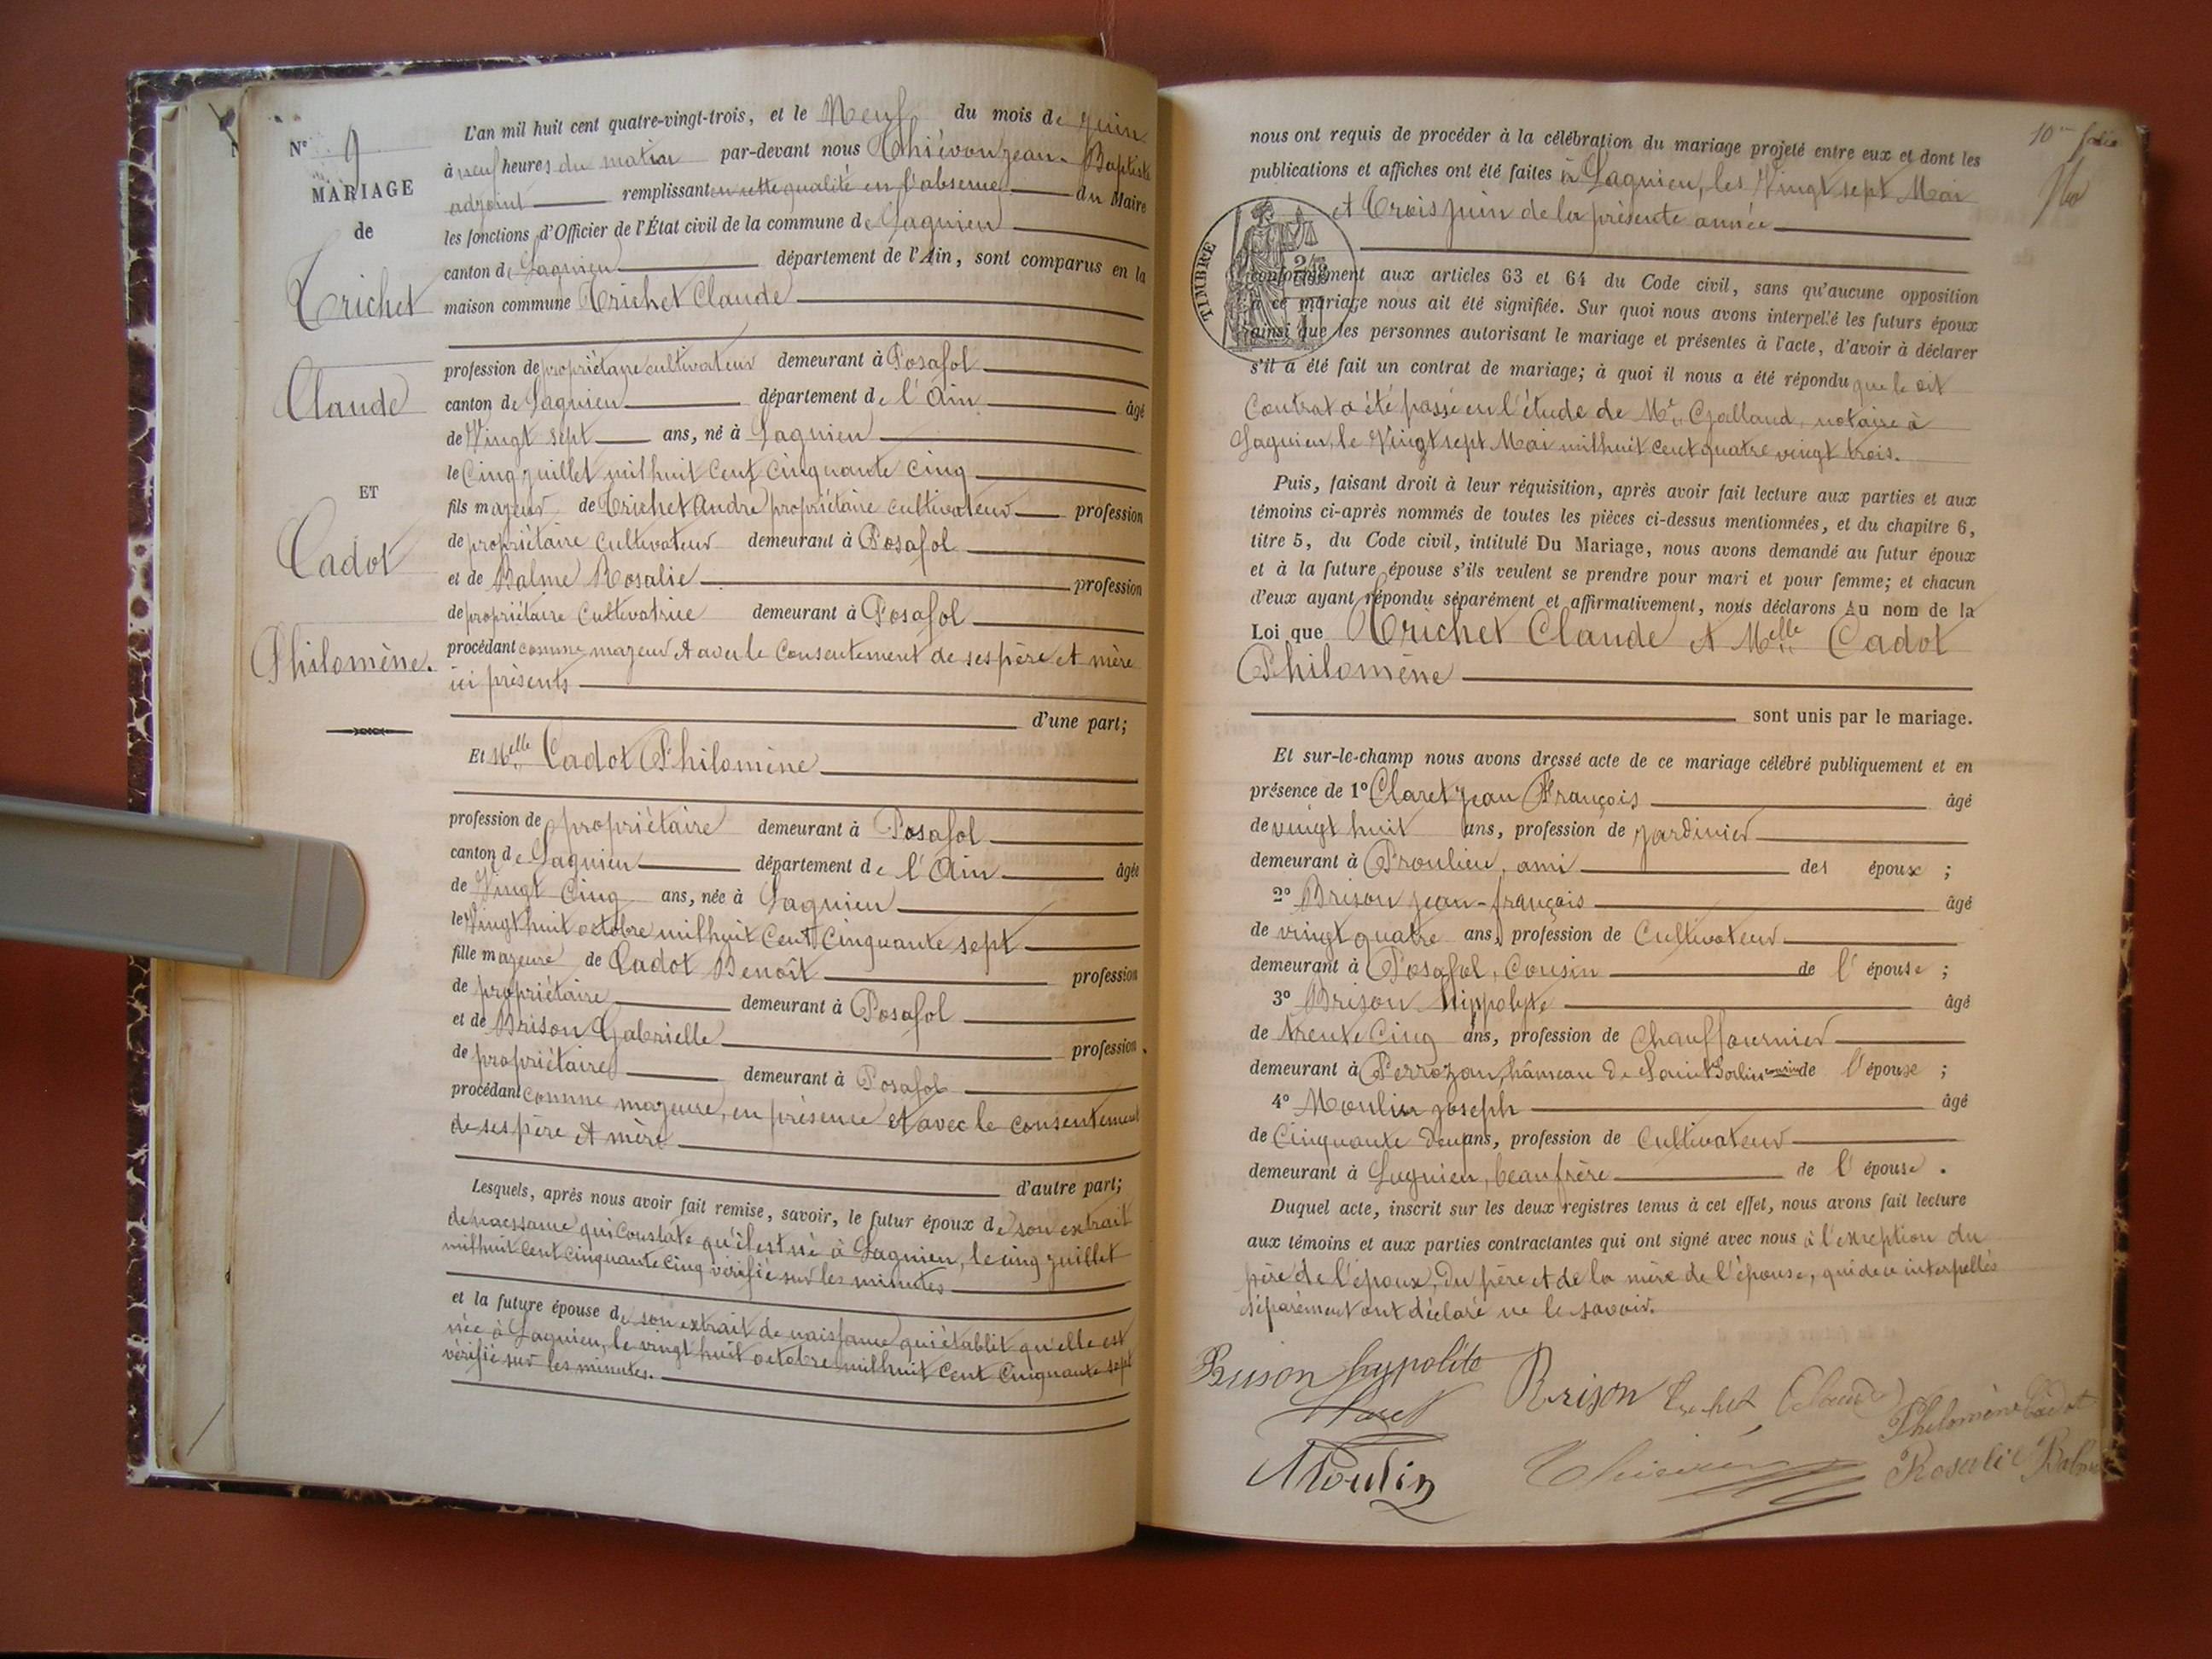 N° 9
MARIAGE
de
Trichet
Claude
ET
Cadot
Philomène.
L'an mil huit cent quatre-vingt-trois, et le Neuf du mois de juin
à neuf heures du matin par-devant nous Thiévon Jean-Baptiste
adjoint remplissant en cette qualité en l'absence du Maire
les fonctions d'Officier de l'État civil de la commune de Lagnieu
canton de Lagnieu département de l'Ain, sont comparus en la
maison commune Trichet Claude
profession de propriétaire cultivateur demeurant à Posafol
canton de Lagnieu département de l'Ain âgé
de Vingt sept ans, né à Lagnieu
le Cinq juillet mil huit Cent Cinquante Cinq
fils majeur de Trichet André propriétaire cultivateur profession
de propriétaire Cultivateur demeurant à Posafol
et de Balme Rosalie profession
de propriétaire Cultivatrice demeurant à Posafol
procédant comme majeur et avec le Consentement de ses père et mère
ici présents
d'une part;
Et Melle Cadot Philomène
profession de propriétaire demeurant à Posafol
canton de Lagnieu département de l'Ain âgée
de Vingt Cinq ans, née à Lagnieu
le Vingt huit octobre mil huit Cent Cinquante sept
fille majeure de Cadot Benoît profession
de propriétaire demeurant à Posafol
et de Brison Gabrielle profession
de propriétaire demeurant à Posafol
procédant comme majeure, en présence et avec le consentement
de ses père et mère
d'autre part;
Lesquels, après nous avoir fait remise, savoir, le futur époux de son extrait
de naissance qui Constate qu'il est né à Lagnieu, le cinq juillet
mil huit Cent Cinquante Cinq vérifié sur les minutes
et la future épouse de son extrait de naissance qui établit qu'elle est
née à Lagnieu, le vingt huit octobre mil huit Cent Cinquante sept
vérifié sur les minutes.
10me folio
nous ont requis de procéder à la célébration du mariage projeté entre eux et dont les
publications et affiches ont été faites à Lagnieu, les Vingt sept Mai
et Trois juin de la présente année
TIMBRE
conformément aux articles 63 et 64 du Code civil, sans qu'aucune opposition
à ce mariage nous ait été signifiée. Sur quoi nous avons interpellé les futurs époux
ainsi que les personnes autorisant le mariage et présentes à l'acte, d'avoir à déclarer
s'il a été fait un contrat de mariage; à quoi il nous a été répondu que le dit
Contrat a été passé en l'étude de Me Galland, notaire à
Lagnieu, le Vingt sept Mai mil huit cent quatre vingt trois.
Puis, faisant droit à leur réquisition, après avoir fait lecture aux parties et aux
témoins ci-après nommés de toutes les pièces ci-dessus mentionnées, et du chapitre 6,
titre 5, du Code civil, intitulé Du Mariage, nous avons demandé au futur époux
et à la future épouse s'ils veulent se prendre pour mari et pour femme; et chacun
d'eux ayant répondu séparément et affirmativement, nous déclarons Au nom de la
Loi que Trichet Claude et Melle Cadot
Philomène
sont unis par le mariage.
Et sur-le-champ nous avons dressé acte de ce mariage célébré publiquement et en
présence de 1° Claret Jean François âgé
de vingt huit ans, profession de jardinier
demeurant à Proulieu, ami des époux ;
2° Brison Jean-françois âgé
de vingt quatre ans, profession de Cultivateur
demeurant à Posafol, Cousin de l'épouse ;
3° Brison Hippolyte âgé
de trente Cinq ans, profession de Chauffournier
demeurant à Perrozan, hameau de Saint Sorlin cousin de l'épouse ;
4° Moulin Joseph âgé
de Cinquante deux ans, profession de Cultivateur
demeurant à Lagnieu, beau frère de l'épouse.
Duquel acte, inscrit sur les deux registres tenus à cet effet, nous avons fait lecture
aux témoins et aux parties contractantes qui ont signé avec nous à l'exception du
père de l'époux, Du père et de la mère de l'épouse, qui de ce interpellés
séparément ont déclaré ne le savoir.
Brison hypolite Brison Trichet Claude Philomène Cadot
Claret
Moulin Thiévon Rosalie Balme